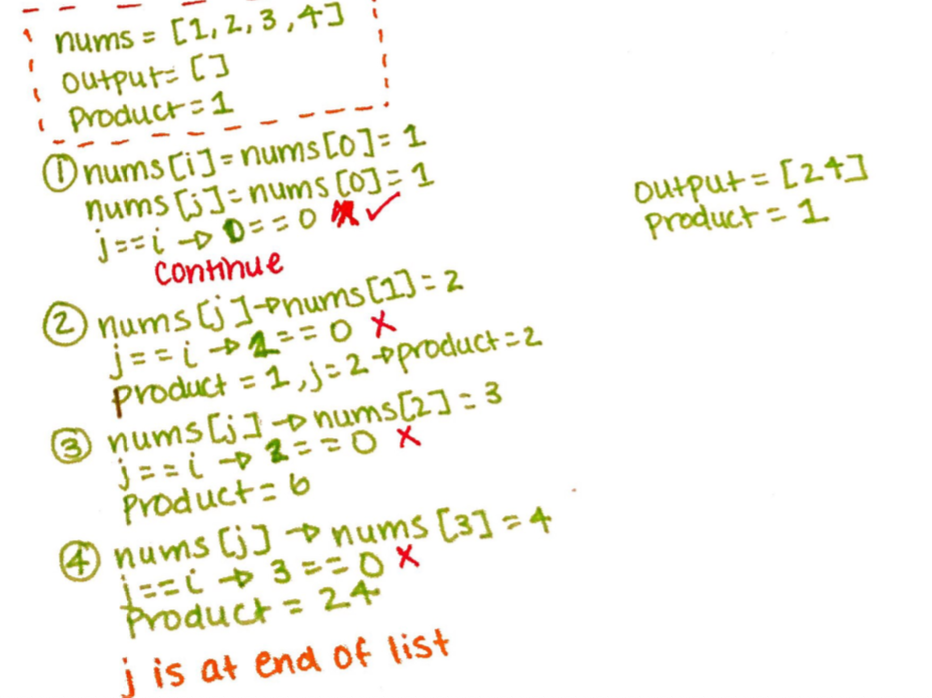 nums = [1, 2, 3, 4]
output= []
Product = 1
① nums[i] = nums[0] = 1
nums[j] = nums[0] = 1
j == i → 0 == 0 ✓
continue
② nums[j] → nums[1] = 2
j == i → 1 == 0 x
product = 1, j=2 → product = 2
③ nums[j] → nums[2] = 3
j == i → 2 == 0 x
Product = 6
④ nums[j] → nums[3] = 4
j == i → 3 == 0 x
Product = 24
j is at end of list
output = [24]
Product = 1